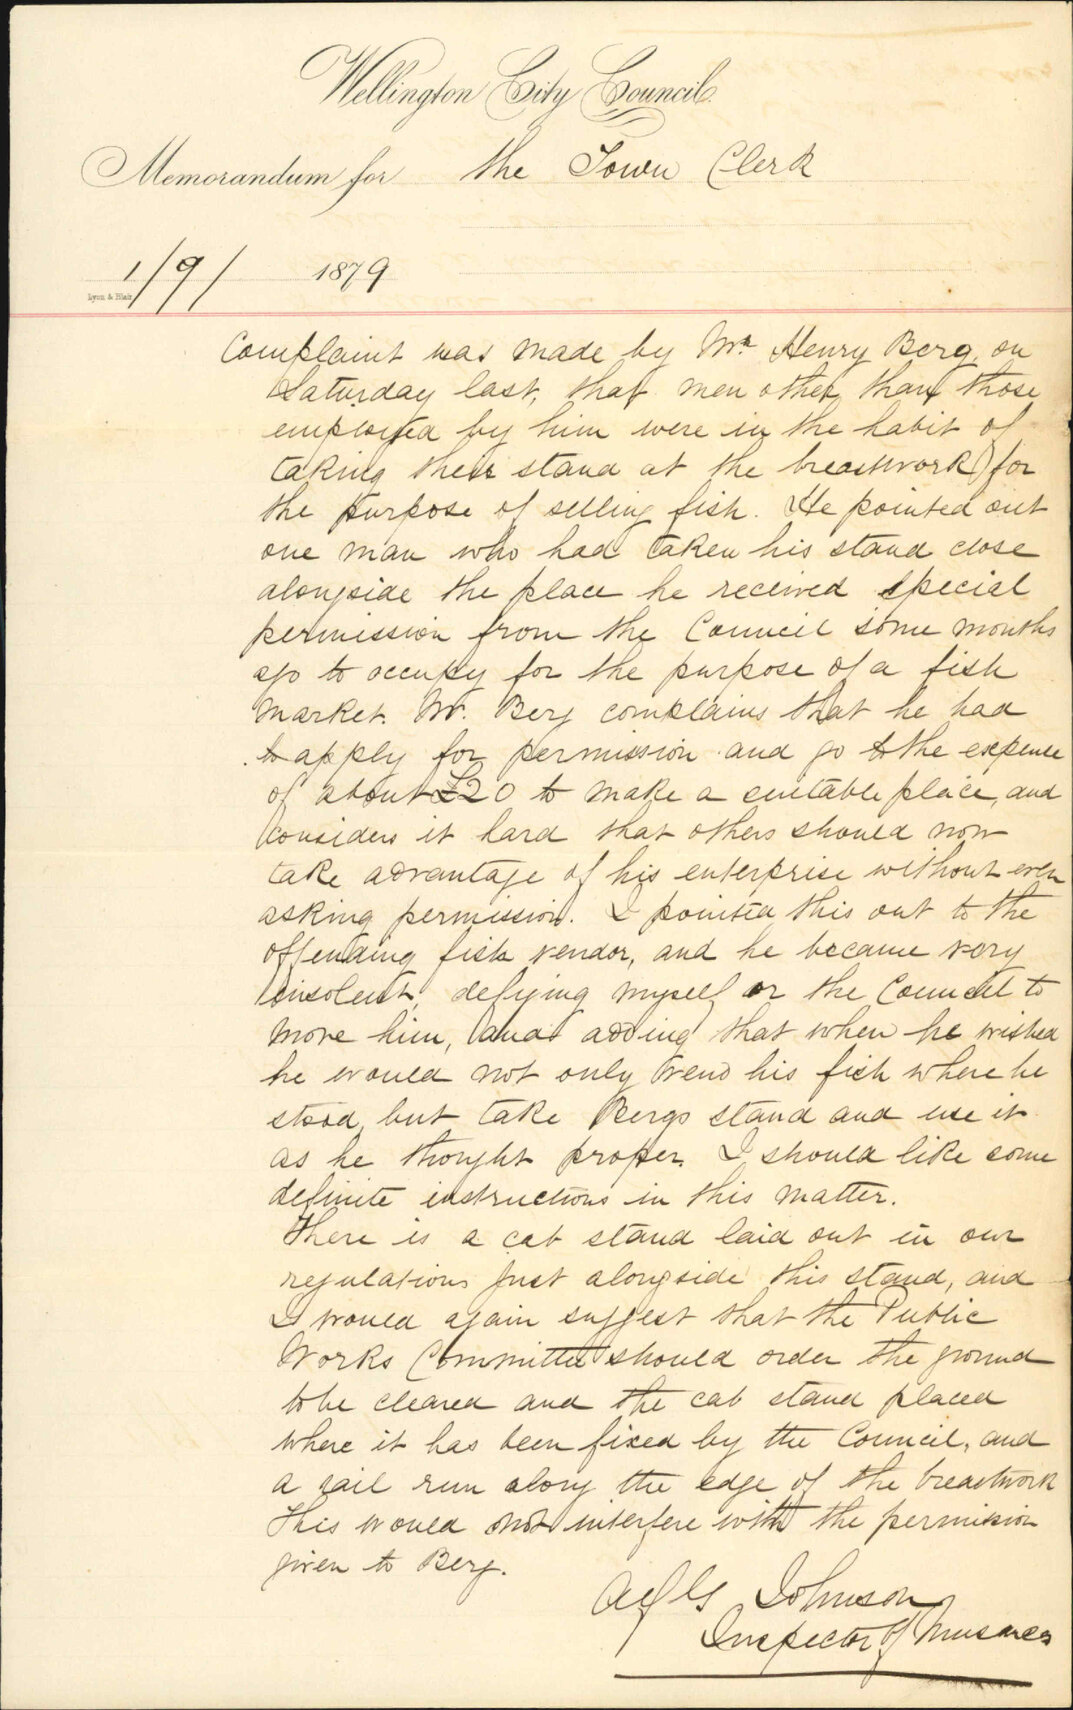 Wellington City Council.
Memorandum for the Town Clerk
1/9/ 1879
Lyon & Blair
Complaint was made by Mr Henry Berg, on
Saturday last, that men other than those
employed by him were in the habit of
taking their stand at the breastwork for
the purpose of selling fish. He pointed out
one man who had taken his stand close
alongside the place he received special
permission from the Council some months
ago to occupy for the purpose of a fish
market. Mr. Berg complains that he had
to apply for permission and go to the expense
of about £20 to make a suitable place, and
considers it hard that others should now
take advantage of his enterprise without even
asking permission. I pointed this out to the
offending fish vendor, and he became very
insolent, defying myself or the Council to
move him, and adding that when he wished
he would not only vend his fish where he
stood, but take Bergs stand and use it
as he thought proper. I should like some
definite instructions in this matter.
There is a cab stand laid out in our
regulations just alongside this stand, and
I would again suggest that the Public
Works Committee should order the ground
to be cleared and the cab stand placed
where it has been fixed by the Council, and
a rail run along the edge of the breastwork
This would not interfere with the permission
given to Berg.
Johnson
Inspector of Nusances